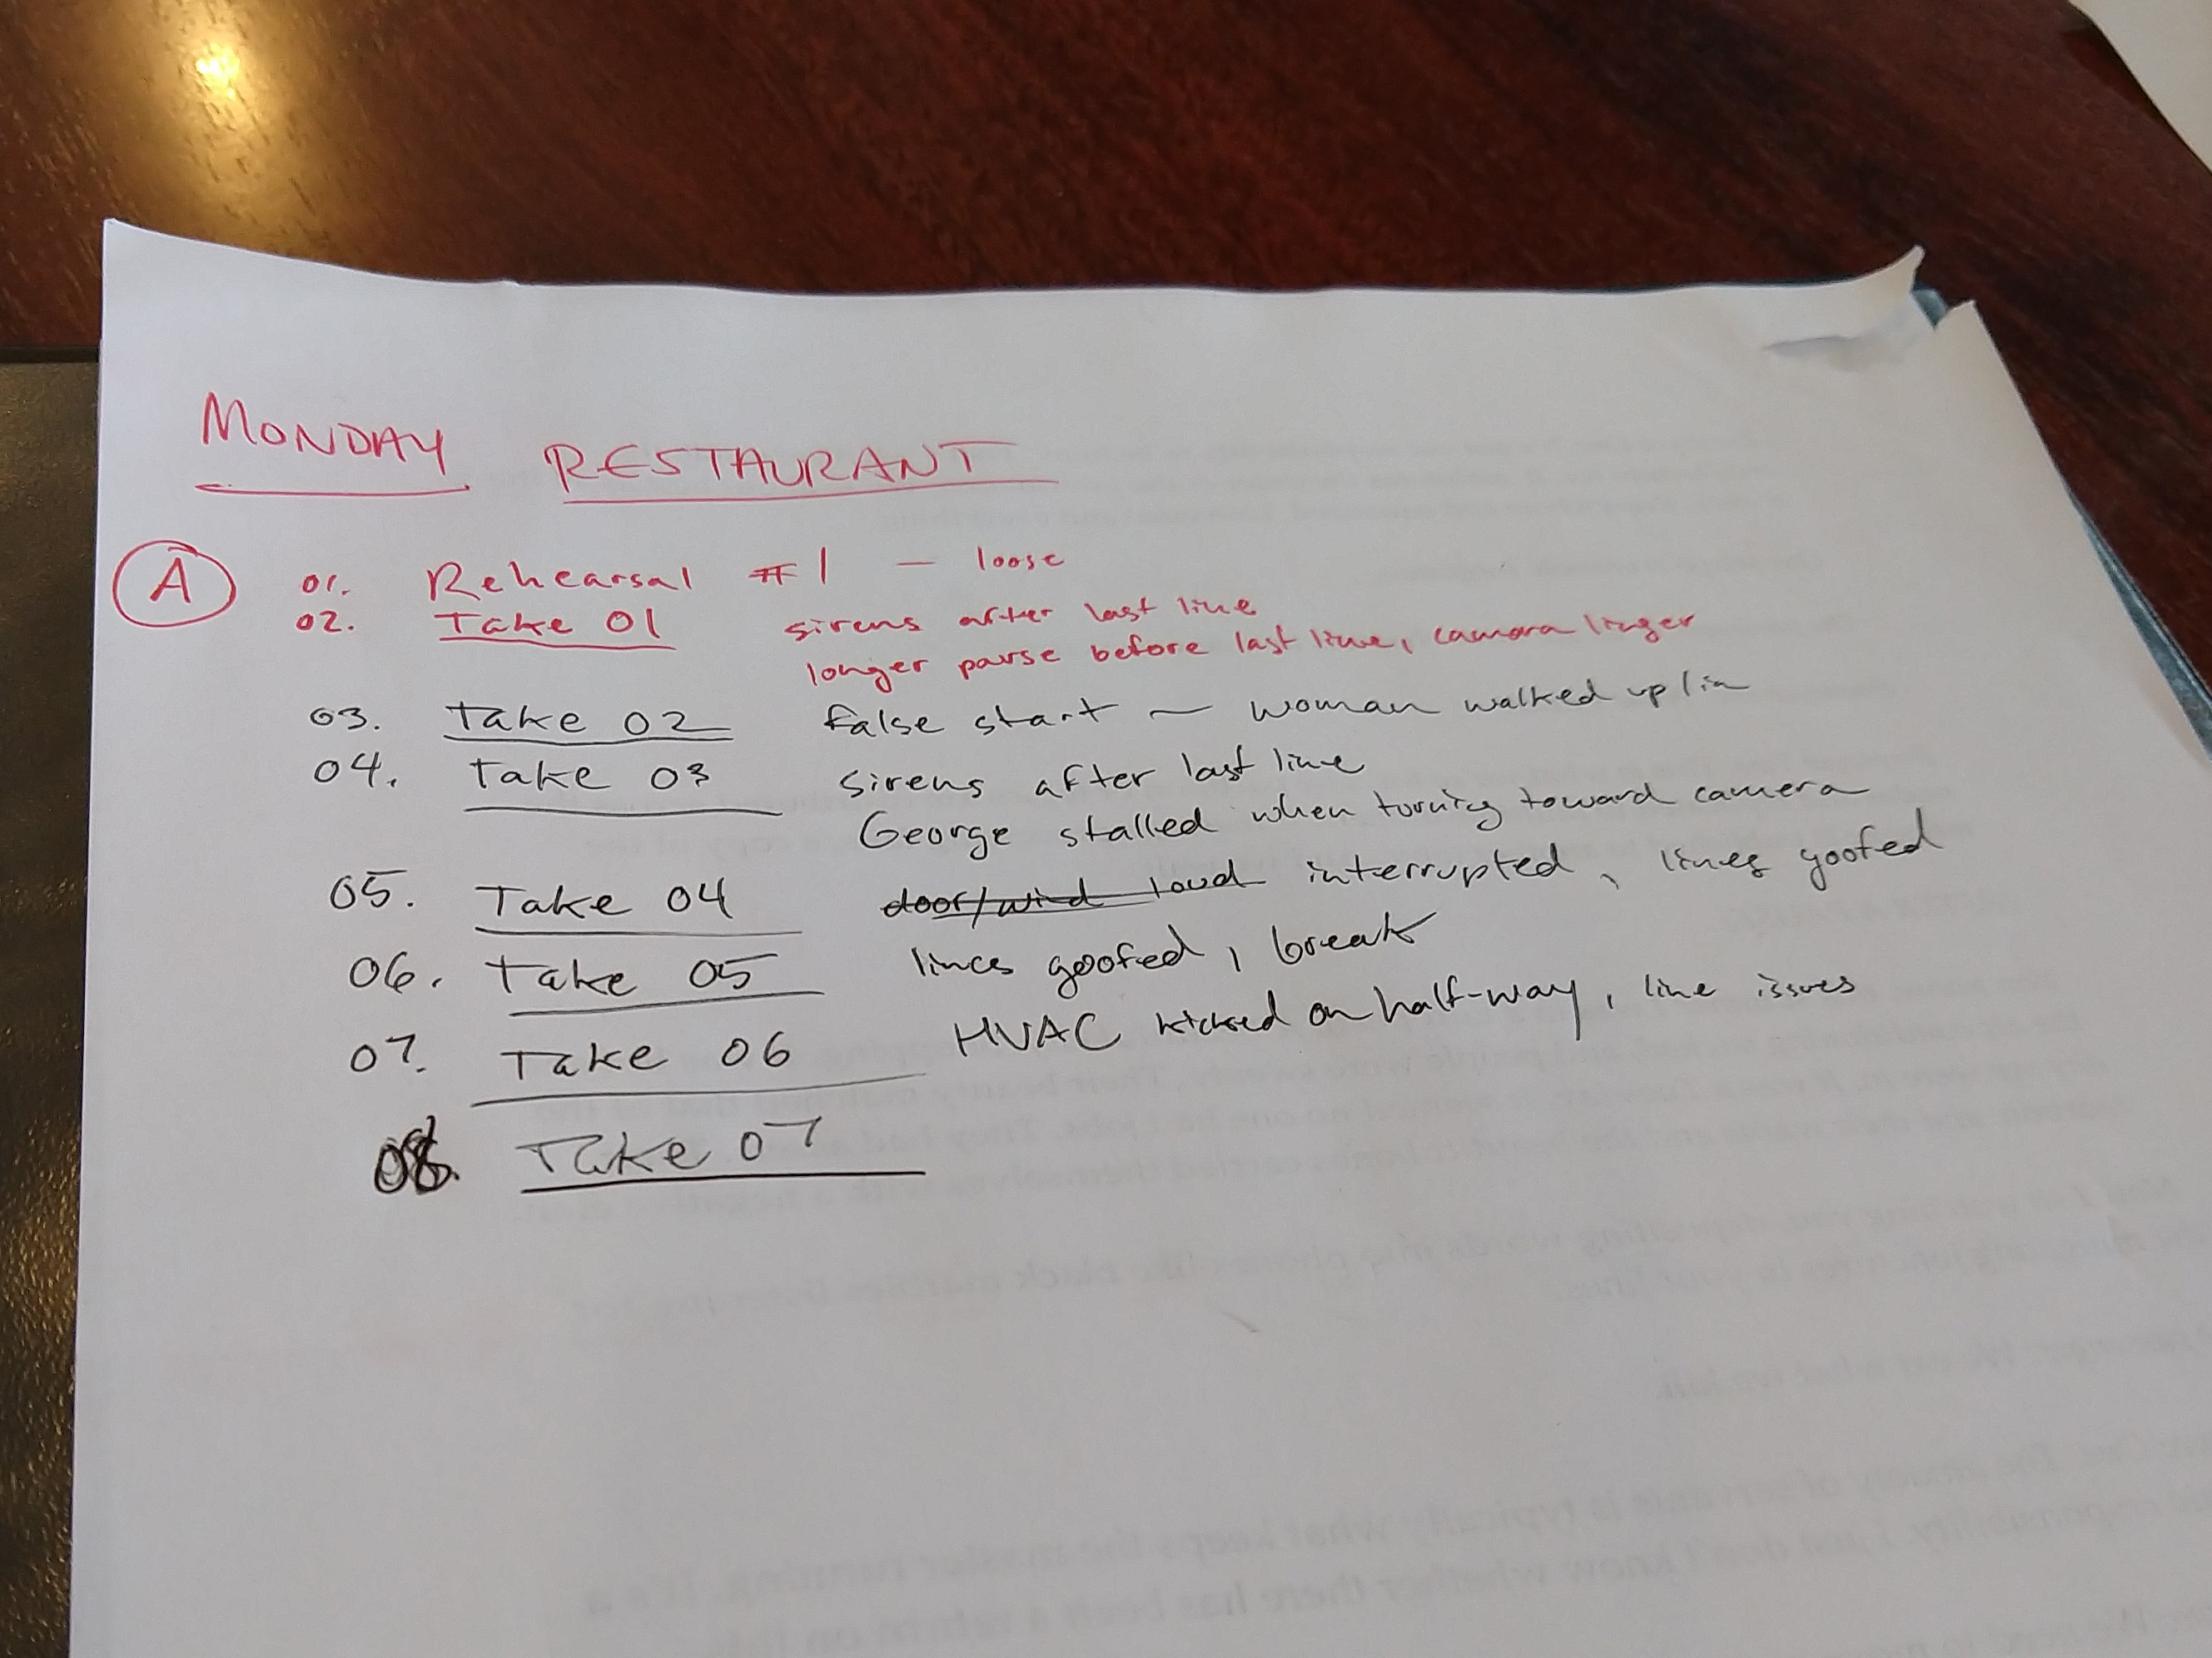 MONDAY RESTAURANT
A 01. Rehearsal #1 — loose
02. Take 01 sirens after last line
longer pause before last line, camera linger
03. Take 02 false start — woman walked up/in
04. Take 03 sirens after last line
George stalled when turning toward camera
05. Take 04 door/wind loud interrupted, lines goofed
06. Take 05 lines goofed, break
07. Take 06 HVAC kicked on half-way, line issues
08. Take 07